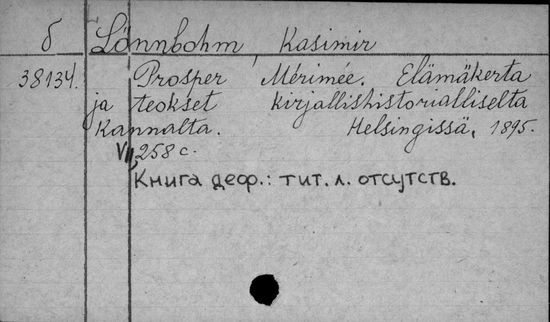 б Lönnbohm, Kasimir
38134. Prosper Mérimée. Elämäkerta
ja teokset kirjallishistorialliselta
kannalta. Helsingissä, 1895.
VII, 258 с.
Книга деф.: тит. л. отсутств.